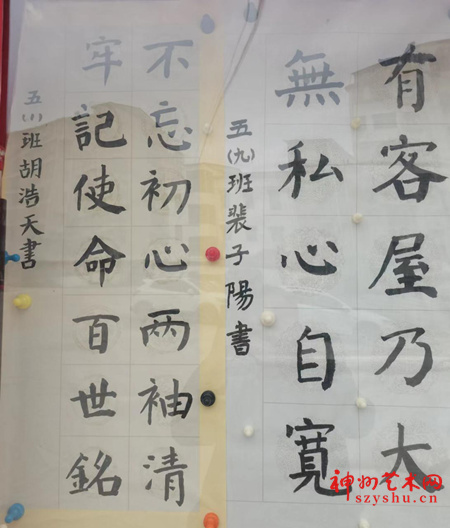 有客屋乃大
無私心自寬
五(九)班裴子陽書
不忘初心两袖清
牢記使命百世銘
五(1)班胡浩天書
神州艺术网
szyshu.cn